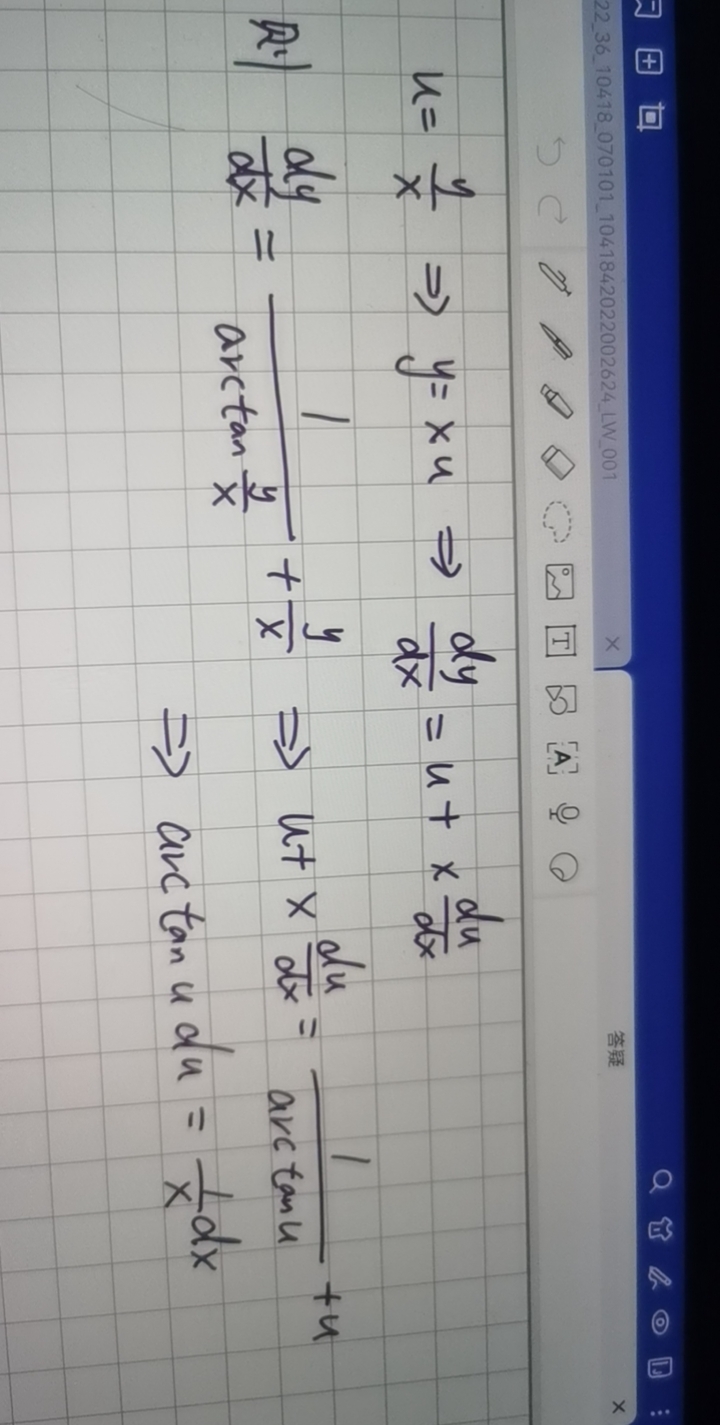 22_36_10418_070101_104184202202002624_LW_001
答疑
u = y/x ⇒ y = xu ⇒ dy/dx = u + x du/dx
则 dy/dx = 1/(arctan y/x) + y/x ⇒ u + x du/dx = 1/(arctan u) + u
⇒ arctan u du = 1/x dx